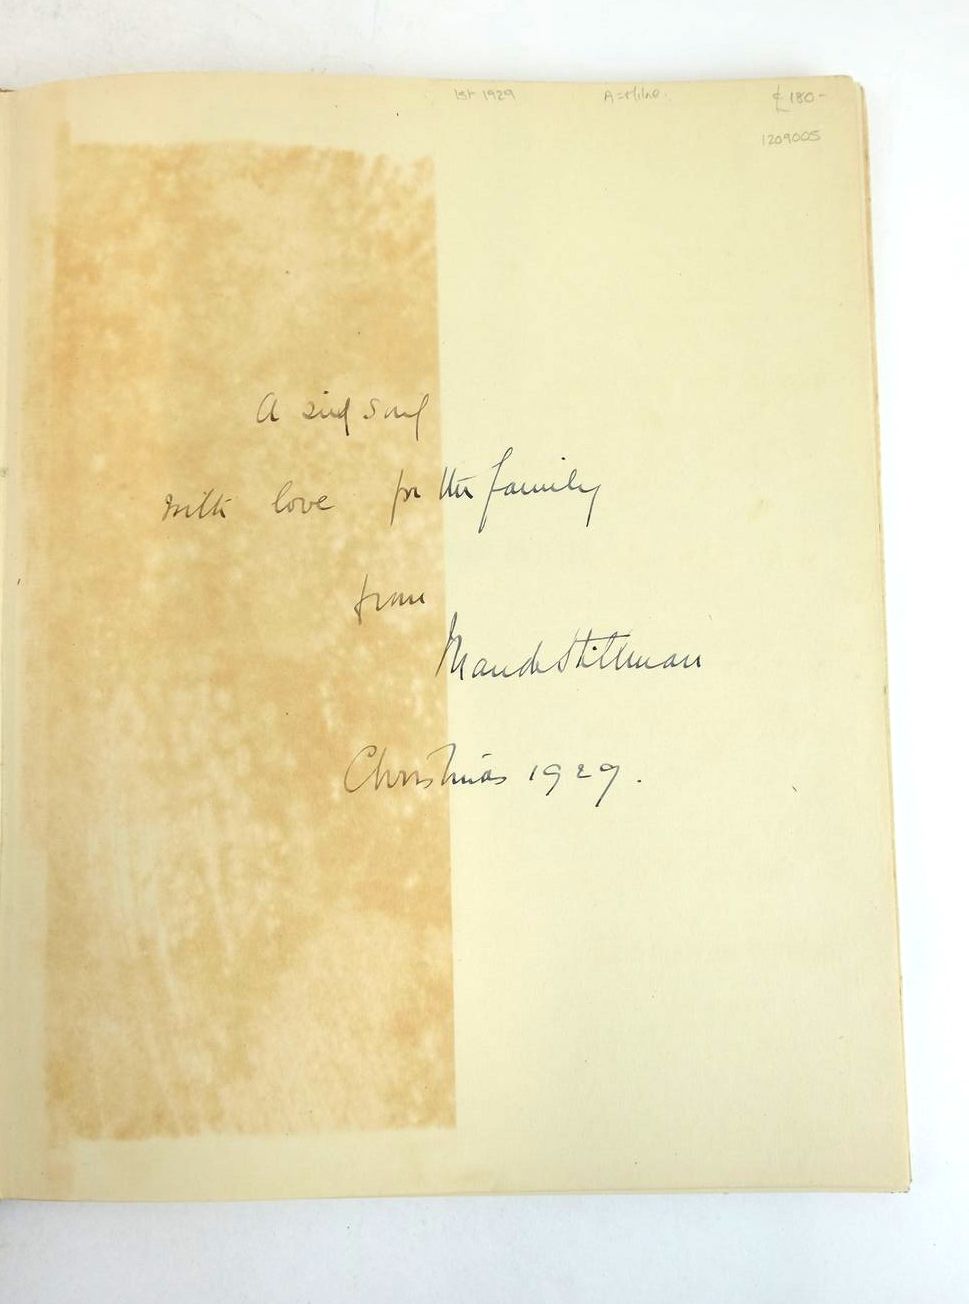 1st 1929 A=Milne. £180-
1209005
A sing song
with love for the family
from
Maude Stillman
Christmas 1929.